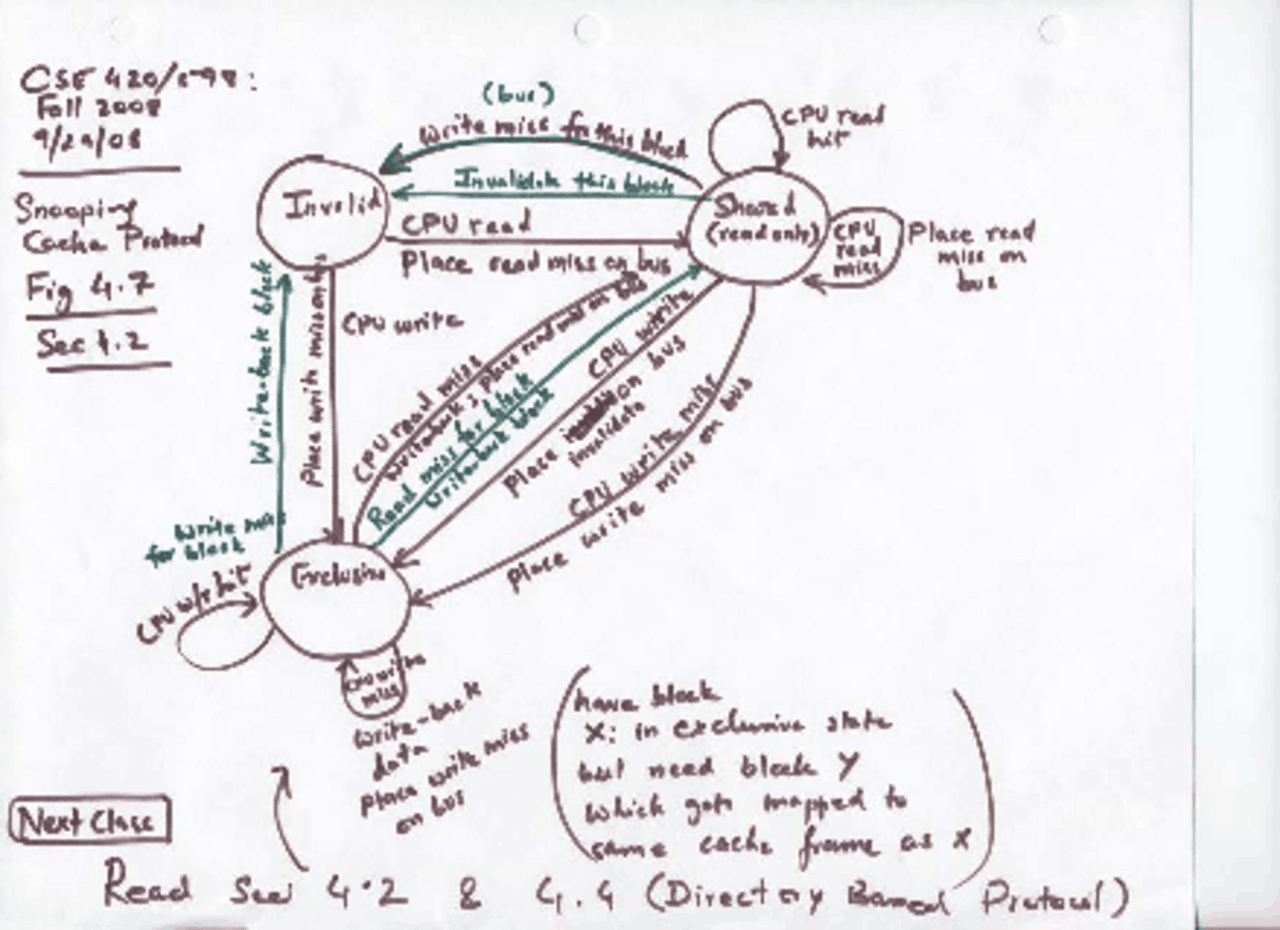 CSE 420/598:
Fall 2008
9/29/08
Snooping
Cache Protocol
Fig 4.7
Sec 4.2
(bus)
Write miss for this block
Invalidate this block
Invalid
CPU read
Place read miss on bus
Shared
(read only)
CPU read
hit
CPU
read
miss
Place read
miss on
bus
Write-back block
Place write miss on bus
CPU write
CPU read miss
Writeback; place read miss on bus
Read miss for block
Writeback block
CPU write
Place on bus
invalidate
CPU write miss
Place write miss on bus
Write miss
for block
Exclusive
CPU w/r hit
CPU write
miss
Write-back
data
place write miss
on bus
have block
X: in exclusive state
but need block Y
which gets mapped to
same cache frame as X
Next Class
Read Sec 4.2 & 4.4 (Directory Based Protocol)